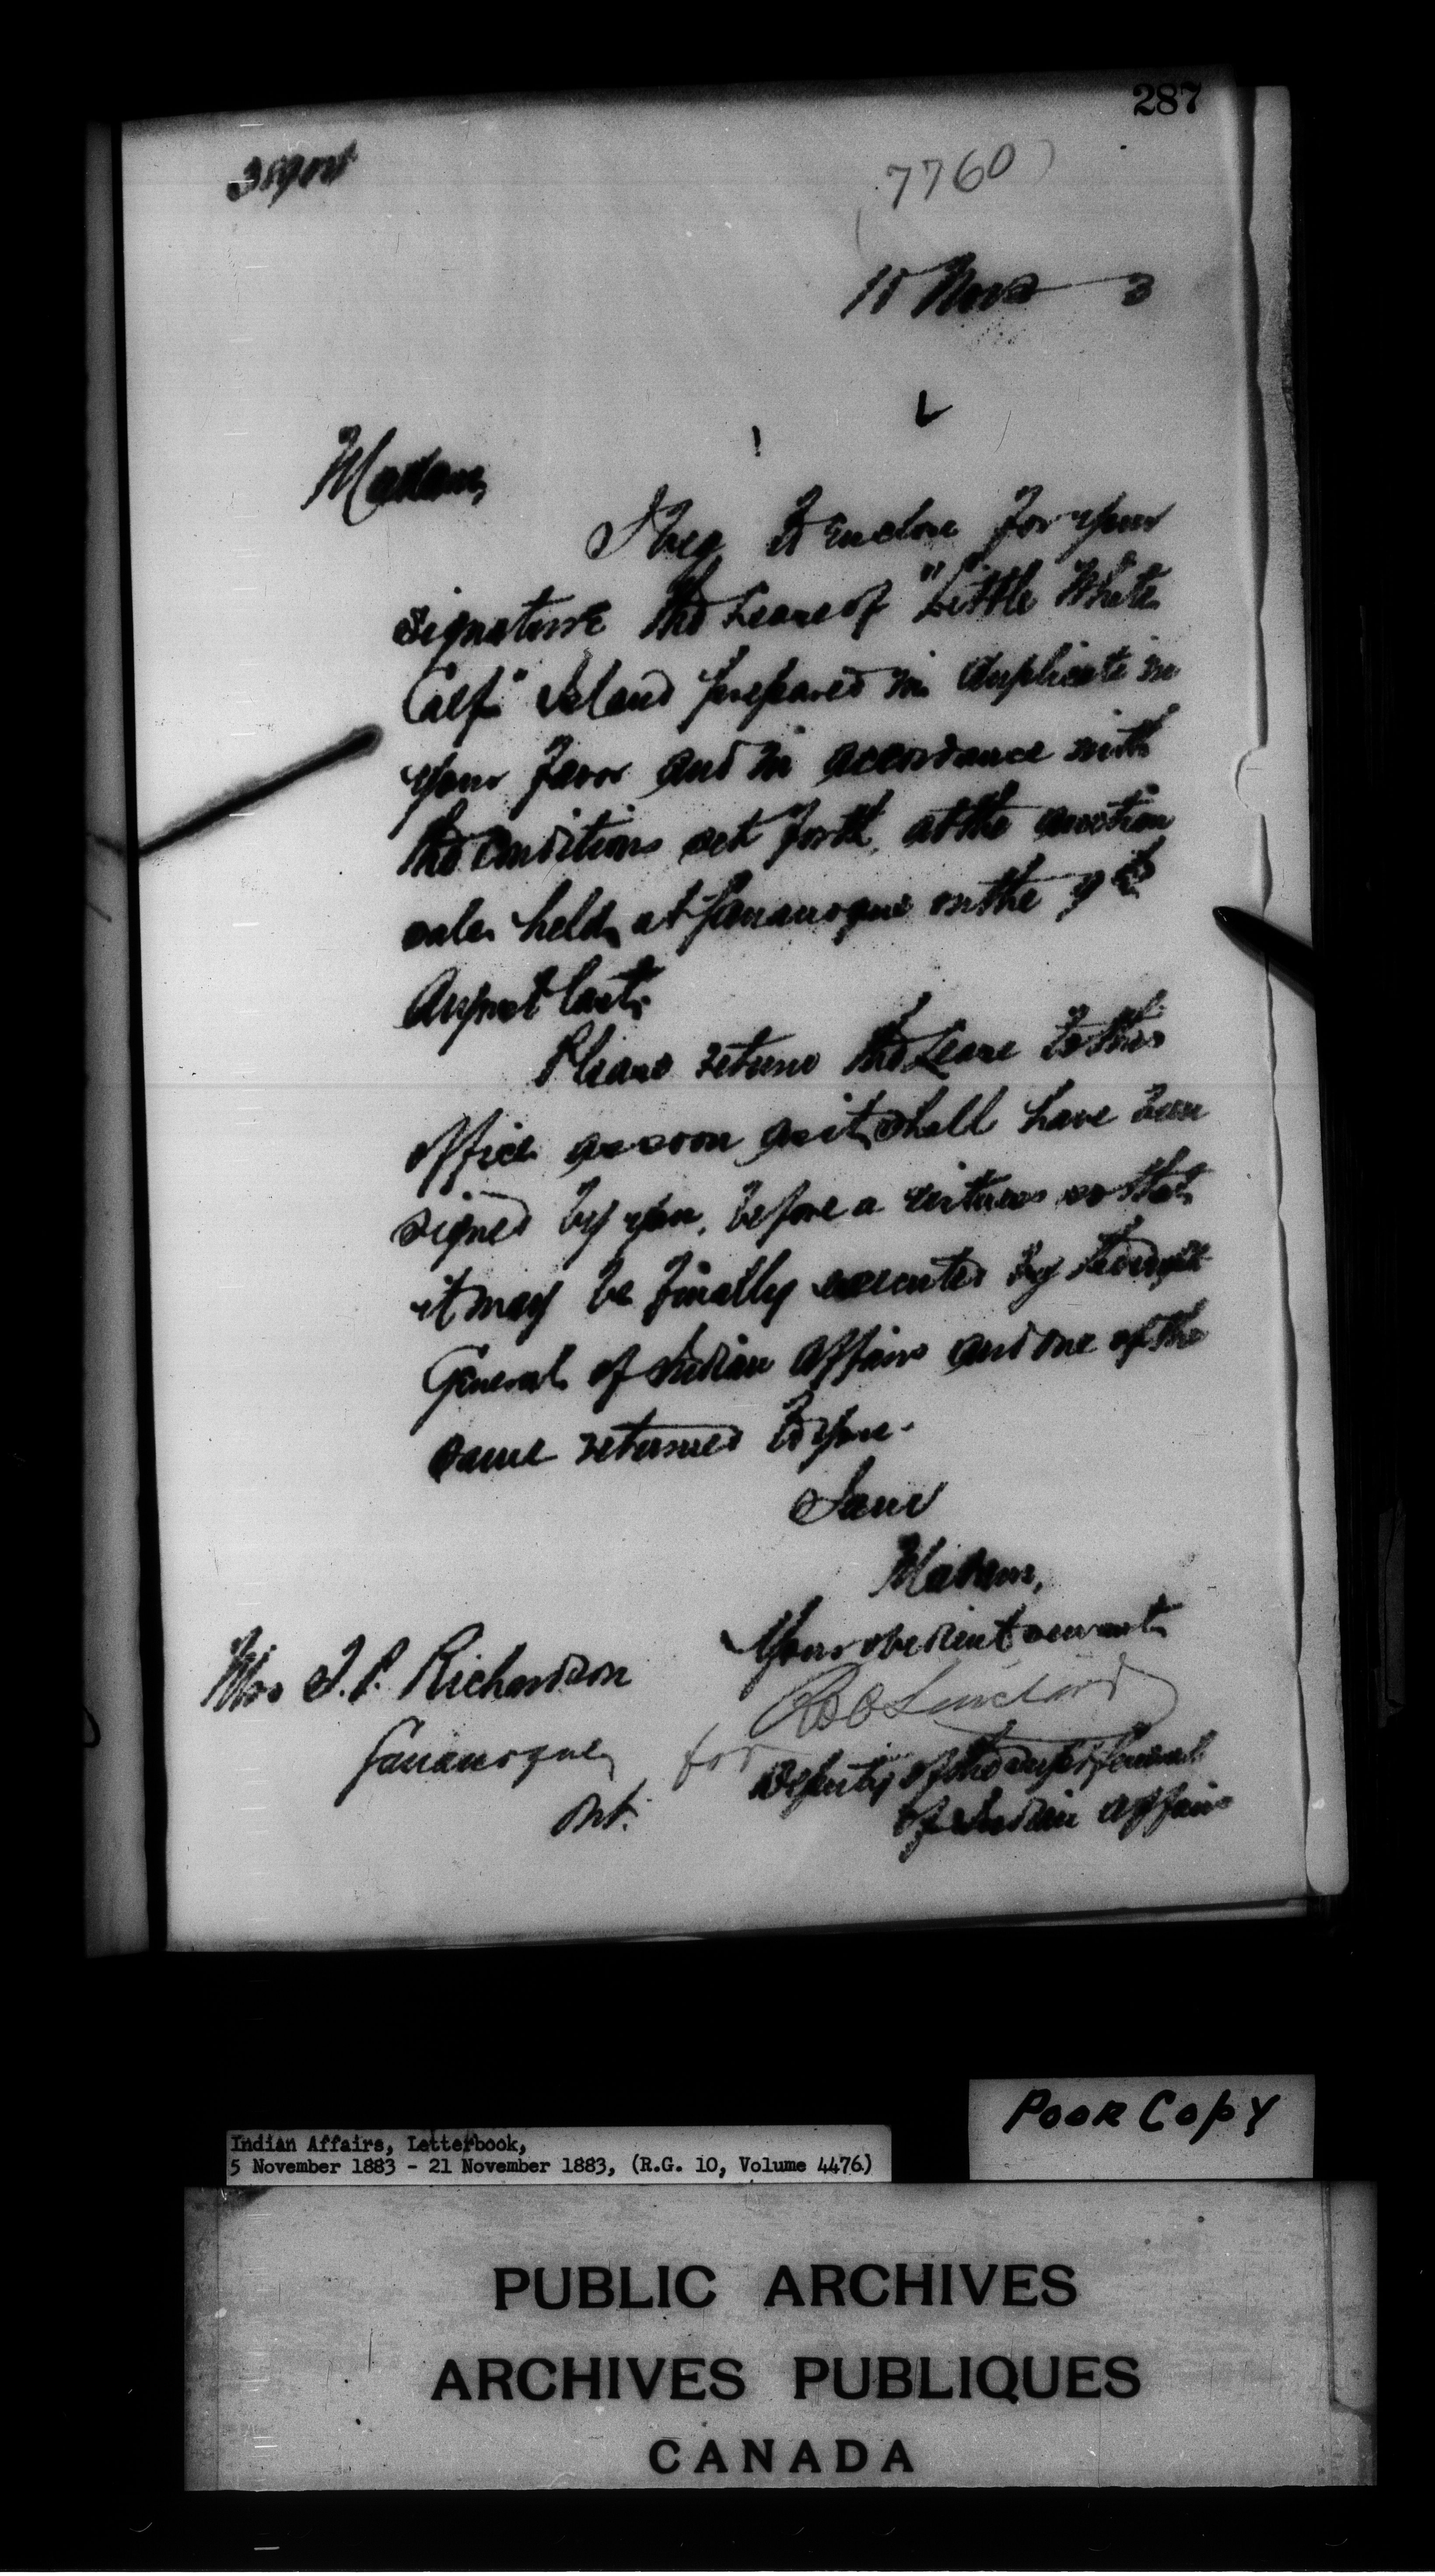 287
7760
15 Nov 3
Madam,
I beg to enclose for your
signature the Lease of "Little White
Calf" Island prepared in duplicate in
your favor and in accordance with
the conditions set forth, at the auction
sale held at Gananoque on the 9th
August last.
Please return the Lease to this
office as soon as it shall have been
signed by you, before a witness so that
it may be finally executed by the Supt
General of Indian Affairs and one of the
same returned to you.
I am
Madam,
Your obedient servant
Mrs Richardson
Gananoque
Ont.
Rob Sinclair
for
Deputy of the Supt General
of Indian Affairs
Poor Copy
Indian Affairs, Letterbook,
5 November 1883 - 21 November 1883, (R.G. 10, Volume 4476)
PUBLIC ARCHIVES
ARCHIVES PUBLIQUES
CANADA